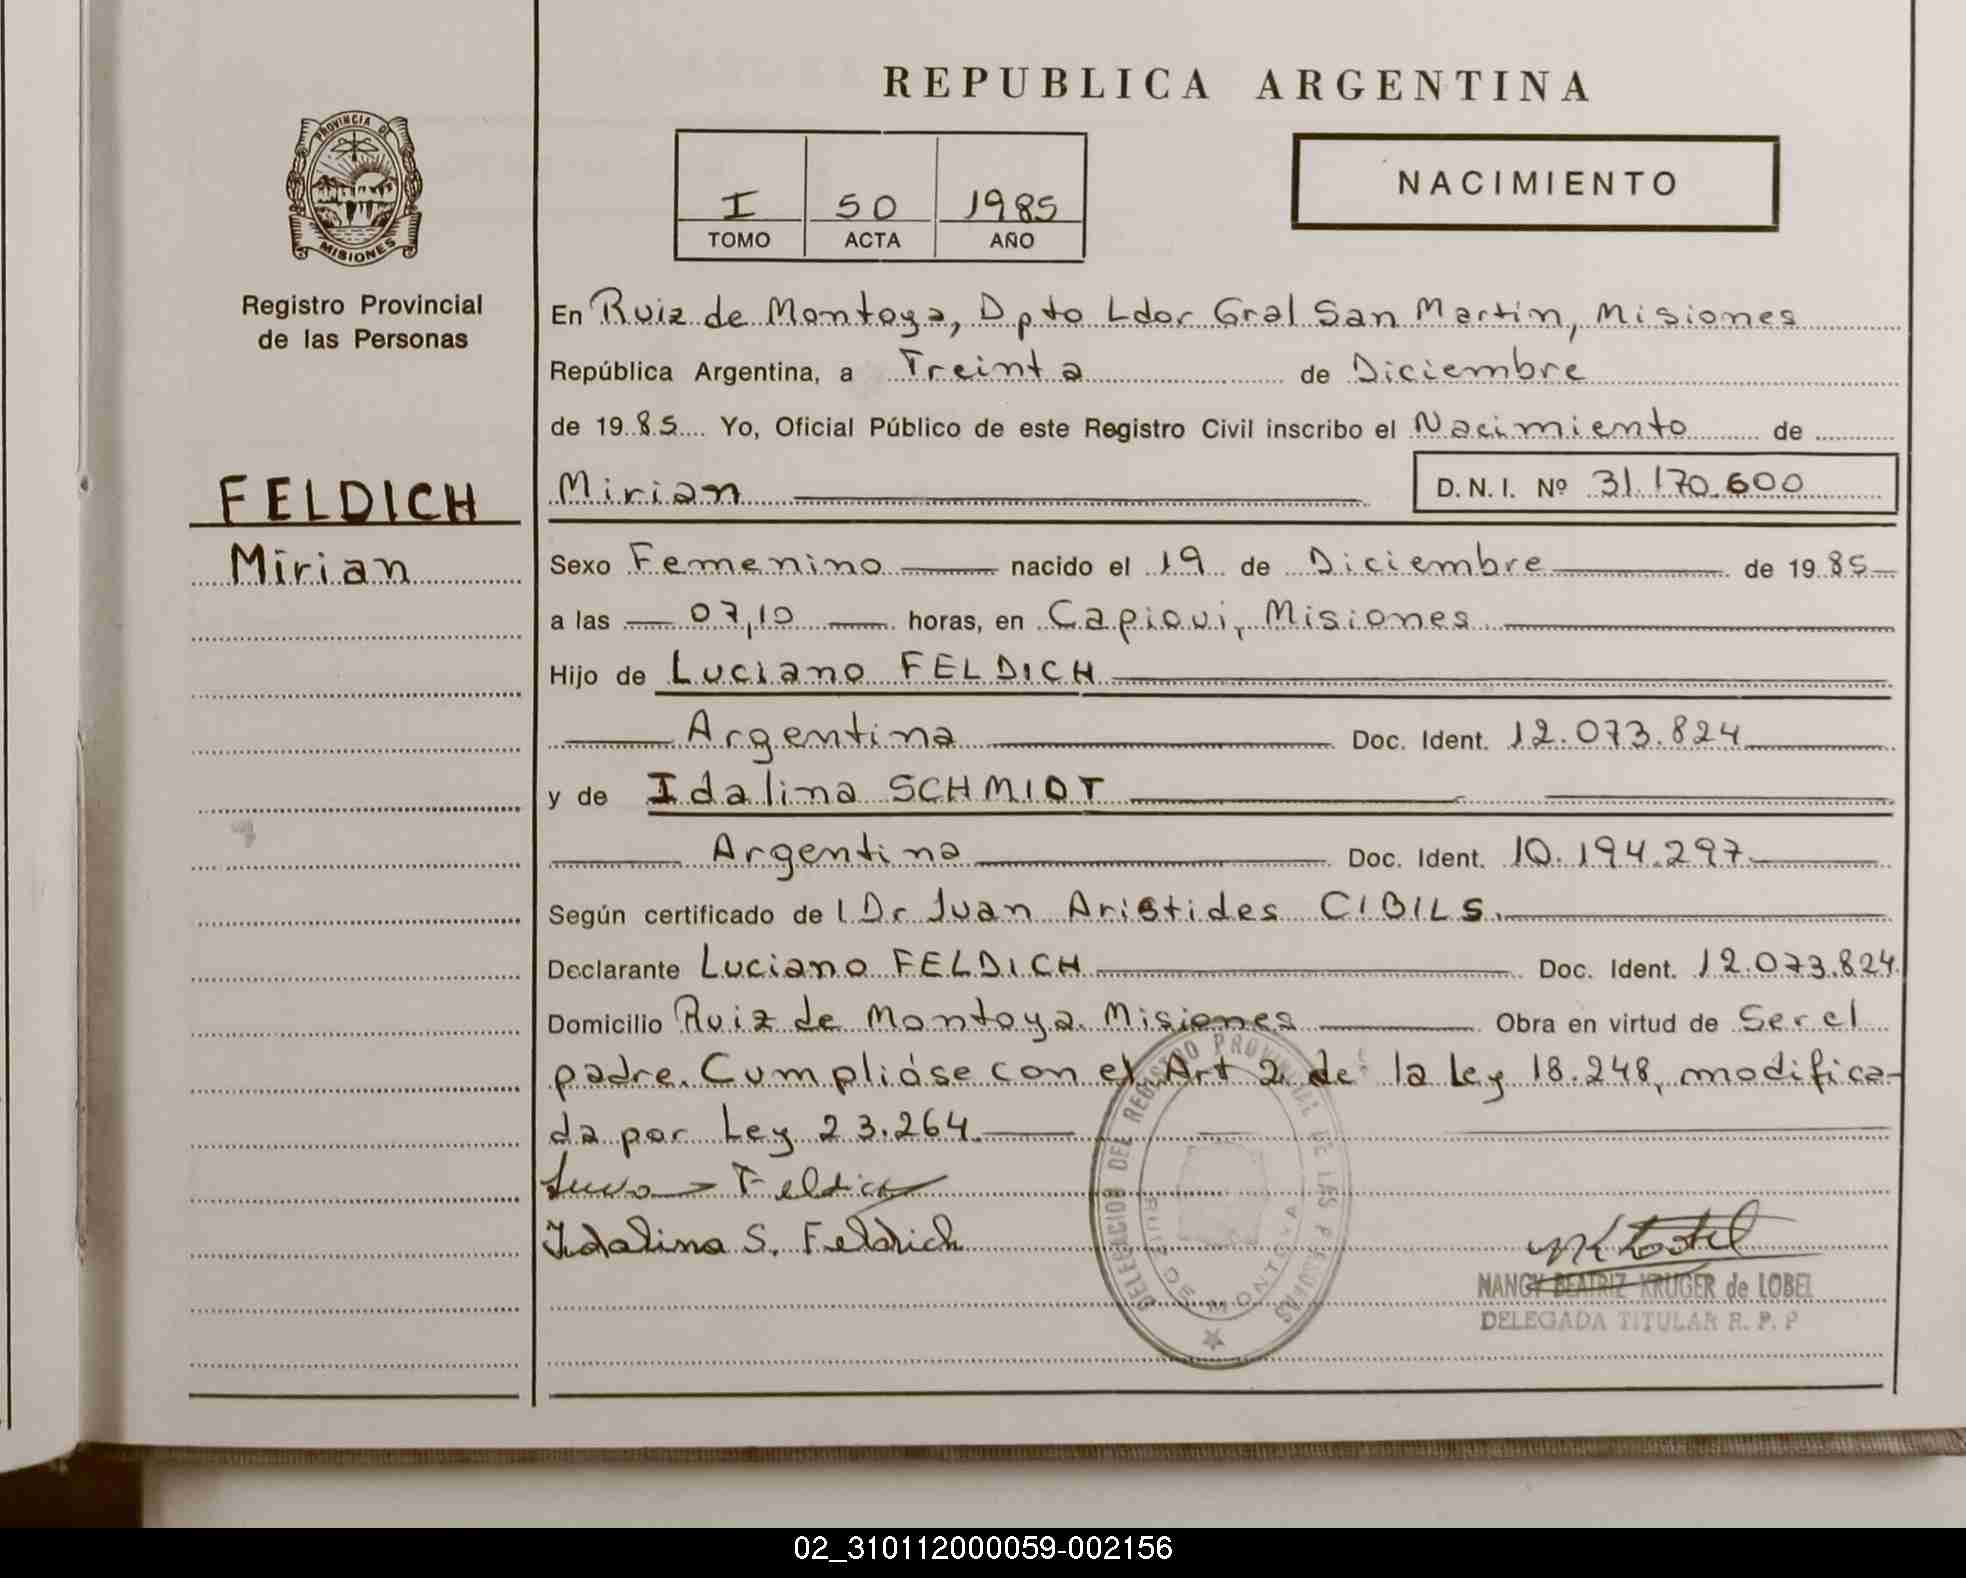 REPUBLICA ARGENTINA
PROVINCIA DE
MISIONES
Registro Provincial
de las Personas
I 50 1985
TOMO ACTA AÑO
NACIMIENTO
En Ruiz de Montoya, Dpto Ldor Gral San Martin, Misiones
República Argentina, a Treinta de Diciembre
de 1985 Yo, Oficial Público de este Registro Civil inscribo el Nacimiento de
FELDICH
Mirian
Mirian D.N.I. Nº 31.170.600
Sexo Femenino nacido el 19 de Diciembre de 1985
a las 07,10 horas, en Capiovi, Misiones
Hijo de Luciano FELDICH
Argentina Doc. Ident. 12.073.824
y de Idalina SCHMIDT
Argentina Doc. Ident. 10.194.297
Según certificado de Dr Juan Aristides CIBILS.
Declarante Luciano FELDICH Doc. Ident. 12.073.824
Domicilio Ruiz de Montoya. Misiones Obra en virtud de Ser el
padre. Cumplióse con el Art 2 de la Ley 18.248, modifica-
da por Ley 23.264.
Feldich
Idalina S. Feldrich
DELEGACION DEL REGISTRO PROVINCIAL DE LAS PERSONAS
RUIZ DE MONTOYA
NANCY BEATRIZ KRUGER de LOBEL
DELEGADA TITULAR R. P. P
02_310112000059-002156